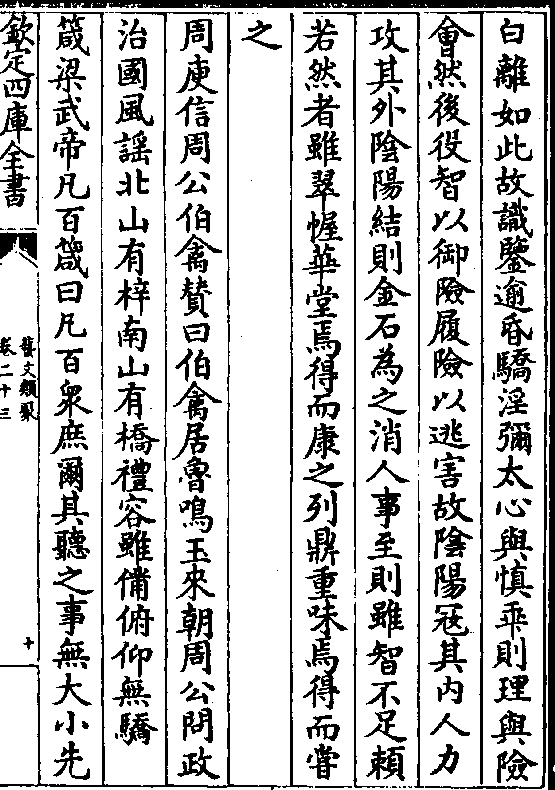 白離如此故識鑒逾昏驕淫彌太心與慎乖則理與險
會然後役智以御險履險以逃害故陰陽冦其内人力
攻其外陰陽結則金石為之消人事至則雖智不足頼
若然者雖翠幄華堂焉得而康之列鼎重味焉得而嘗
之
周庾信周公伯禽賛曰伯禽居魯鳴玉來朝周公問政
治國風謡北山有梓南山有橋禮容雖備俯仰無驕
箴梁武帝凡百箴曰凡百衆庶爾其聽之事無大小先
欽定四庫全書
藝文類聚
卷二十三
十